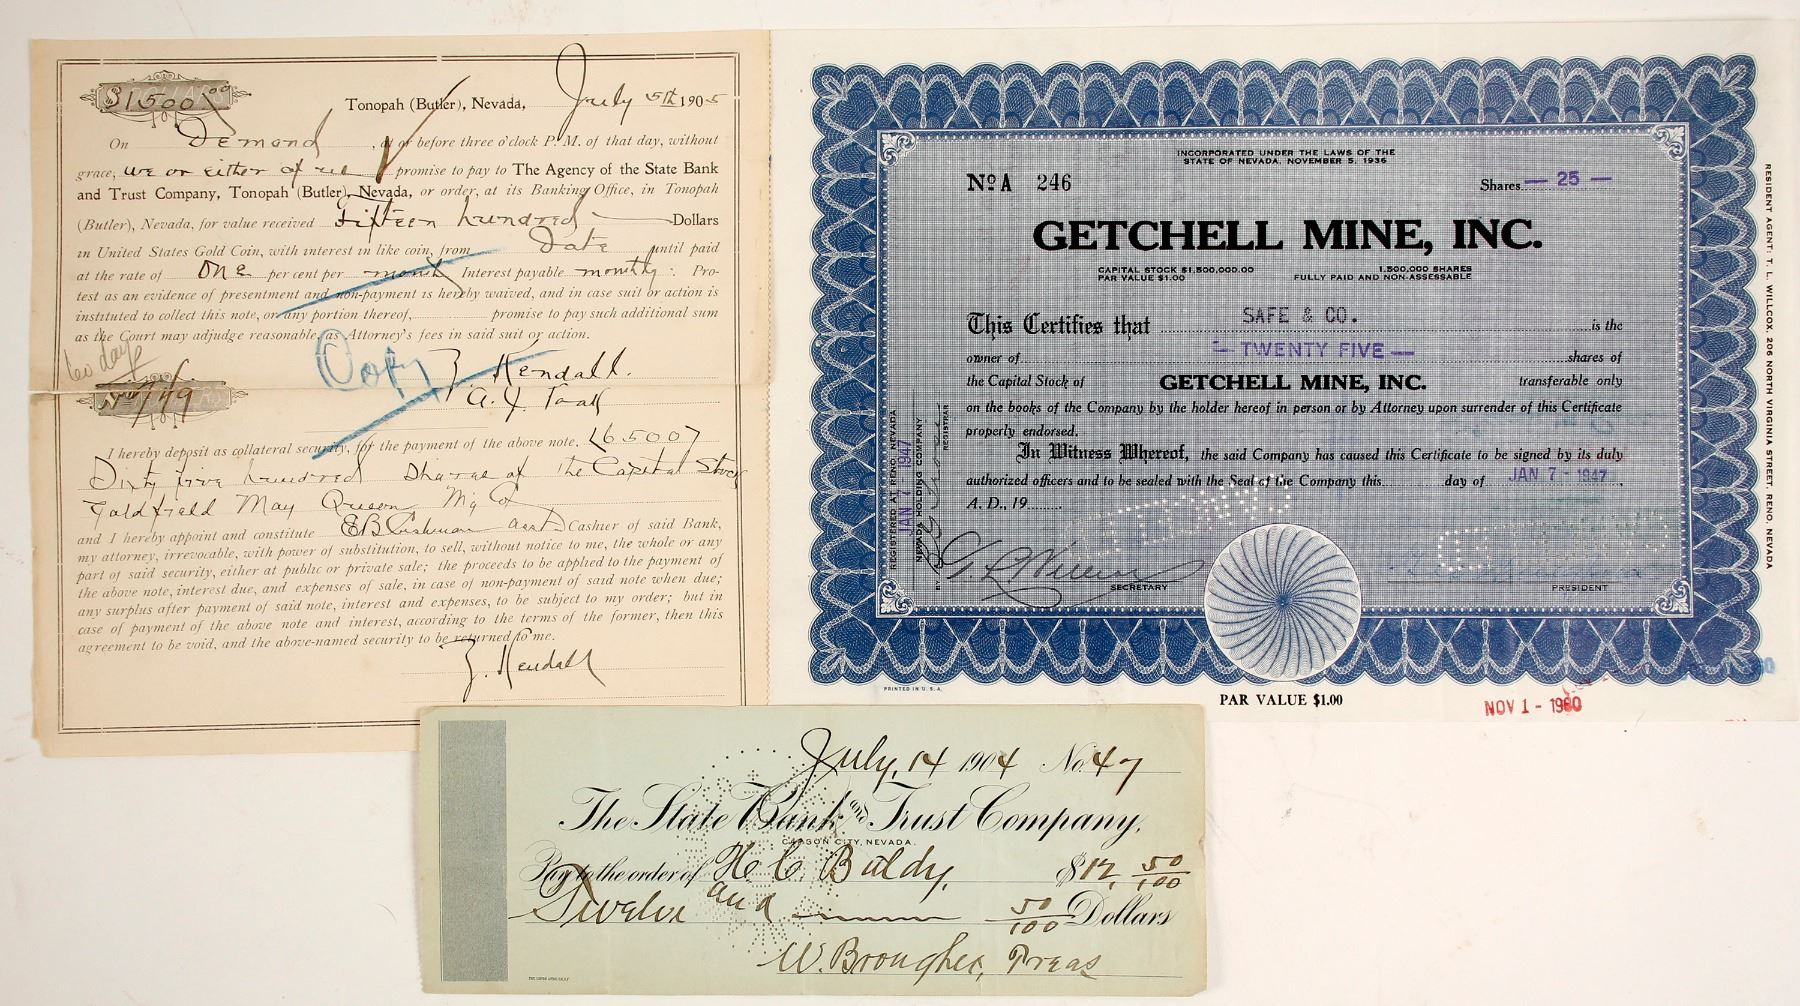 $1500.00
Tonopah (Butler), Nevada, July 5th 1905
On Demand, at or before three o'clock P. M. of that day, without
grace, we or either of us promise to pay to The Agency of the State Bank
and Trust Company, Tonopah (Butler), Nevada, or order, at its Banking Office, in Tonopah
(Butler), Nevada, for value received Fifteen hundred Dollars
in United States Gold Coin, with interest in like coin from Date until paid
at the rate of One per cent per month Interest payable monthly. Pro-
test as an evidence of presentment and non-payment is hereby waived, and in case suit or action is
instituted to collect this note, or any portion thereof, promise to pay such additional sum
as the Court may adjudge reasonable, as Attorney's fees in said suit or action.
Copy
Z. Kendall.
I hereby deposit as collateral security, for the payment of the above note, (6500)
Sixty five hundred Shares of the Capital Stock
Goldfield May Queen Mg Co
and I hereby appoint and constitute E B Cushman Asst Cashier of said Bank,
my attorney, irrevocable, with power of substitution, to sell, without notice to me, the whole or any
part of said security, either at public or private sale; the proceeds to be applied to the payment of
the above note, interest due, and expenses of sale, in case of non-payment of said note when due;
any surplus after payment of said note, interest and expenses, to be subject to my order; but in
case of payment of the above note and interest, according to the terms of the former, then this
agreement to be void, and the above-named security to be returned to me.
Z. Kendall
INCORPORATED UNDER THE LAWS OF THE
STATE OF NEVADA, NOVEMBER 5, 1936
No A 246
Shares — 25 —
GETCHELL MINE, INC.
CAPITAL STOCK $1,500,000.00
PAR VALUE $1.00
1,500,000 SHARES
FULLY PAID AND NON-ASSESSABLE
This Certifies that SAFE & CO. is the
owner of — TWENTY FIVE — shares of
the Capital Stock of GETCHELL MINE, INC. transferable only
on the books of the Company by the holder hereof in person or by Attorney upon surrender of this Certificate
properly endorsed.
In Witness Whereof, the said Company has caused this Certificate to be signed by its duly
authorized officers and to be sealed with the Seal of the Company this day of JAN 7 - 1947,
A. D., 19
CANCELLED
SECRETARY
PRESIDENT
REGISTERED AT RENO, NEVADA
JAN 7 - 1947
NEVADA HOLDING COMPANY
BY
REGISTRAR
RESIDENT AGENT: T. L. WILLCOX, 206 NORTH VIRGINIA STREET, RENO, NEVADA
PRINTED IN U. S. A.
PAR VALUE $1.00
NOV 1 - 1960
July 14 1904 No. 47
The State Bank and Trust Company,
CARSON CITY, NEVADA.
Pay to the order of H. C. Baldy, $12, 50/100
Twelve and 50/100 Dollars
W. Brougher, Treas